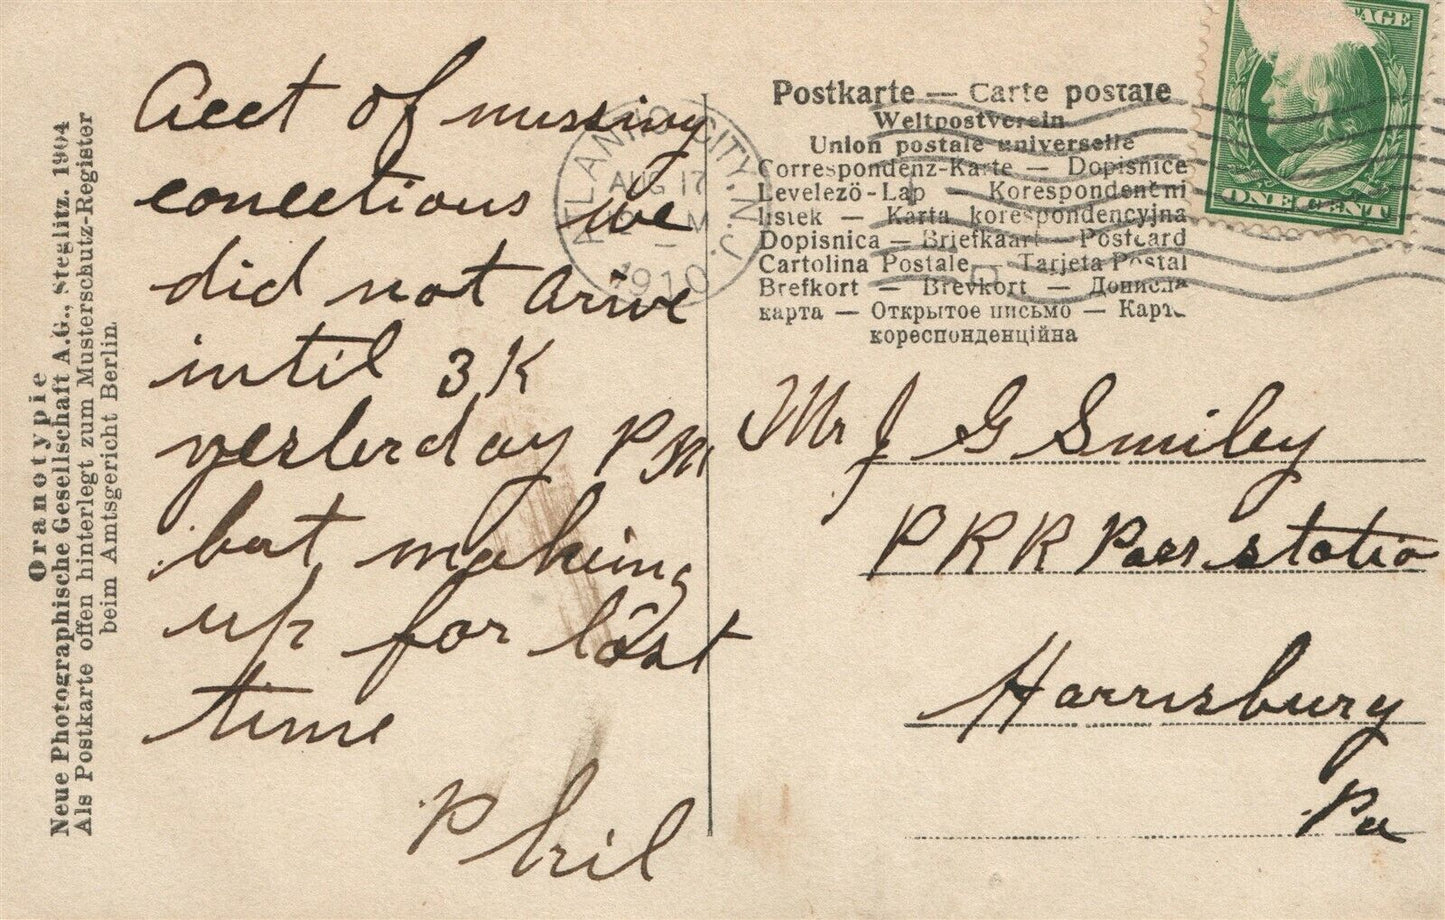 Acct of missing
conections we
did not arive
intil 3 K
yesterday PM
but making
up for lost
time
Phil
Oranotypie
Neue Photographische Gesellschaft A.G., Steglitz. 1904
Als Postkarte offen hinterlegt zum Musterschutz-Register
beim Amtsgericht Berlin.
ATLANTIC CITY, N.J.
AUG 17
M
1910
Postkarte — Carte postale
Weltpostverein
Union postale universelle
Correspondenz-Karte — Dopisnice
Levelezö-Lap — Korespondenční
listek — Karta korespondencyjna
Dopisnica — Briefkaart — Postcard
Cartolina Postale — Tarjeta Postal
Brefkort — Brevkort — Дописна
карта — Открытое письмо — Карта
кореспонденційна
ONE CENT
Mr J G Smiley
P R R Pass statio
Harrisburg
Pa